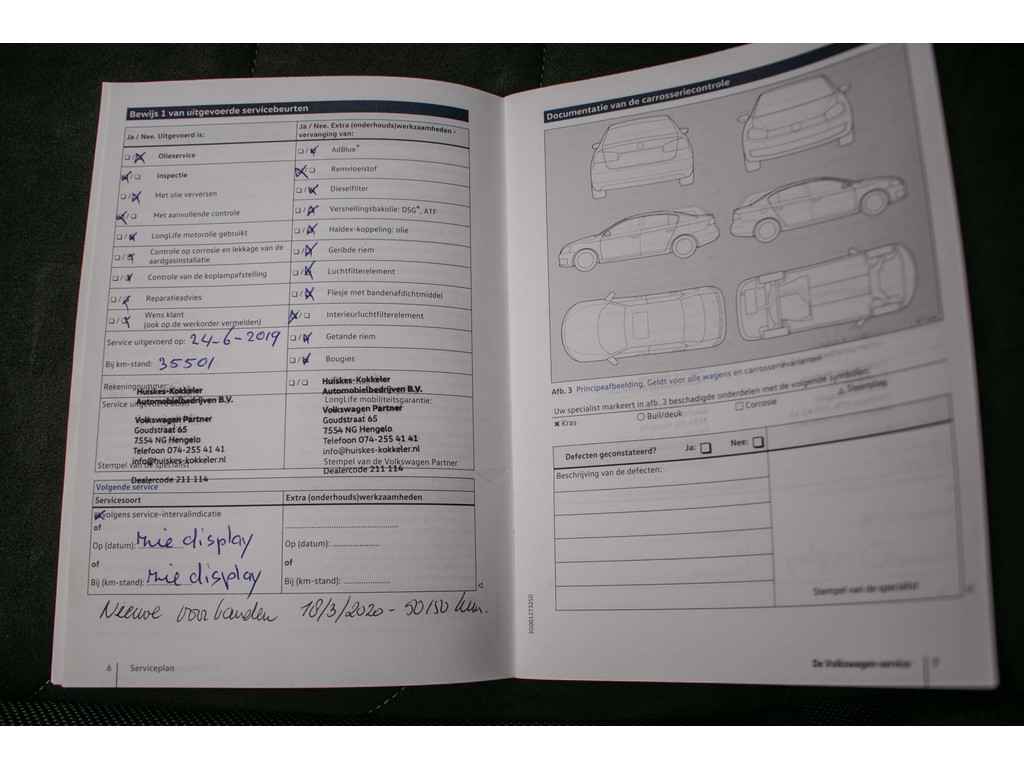 Bewijs 1 van uitgevoerde servicebeurten
Ja / Nee. Uitgevoerd is:
Olieservice
Inspectie
Met olie verversen
Met aanvullende controle
LongLife motorolie gebruikt
Controle op corrosie en lekkage van de
aardgasinstallatie
Controle van de koplampafstelling
Reparatieadvies
Wens klant
(ook op de werkorder vermelden)
Service uitgevoerd op: 24-6-2019
Bij km-stand: 35501
Rekeningnummer:
Huiskes-Kokkeler
Automobielbedrijven B.V.
Service uitgevoerd
Volkswagen Partner
Goudstraat 65
7554 NG Hengelo
Telefoon 074-255 41 41
info@huiskes-kokkeler.nl
Stempel van de specialist
Dealercode 211 114
Ja / Nee. Extra (onderhouds)werkzaamheden -
vervanging van:
AdBlue®
Remvloeistof
Dieselfilter
Versnellingsbakolie: DSG®, ATF
Haldex-koppeling: olie
Geribde riem
Luchtfilterelement
Flesje met bandenafdichtmiddel
Interieurluchtfilterelement
Getande riem
Bougies
Huiskes-Kokkeler
Automobielbedrijven B.V.
LongLife mobiliteitsgarantie:
Volkswagen Partner
Goudstraat 65
7554 NG Hengelo
Telefoon 074-255 41 41
info@huiskes-kokkeler.nl
Stempel van de Volkswagen Partner
Dealercode 211 114
Volgende service
Servicesoort
Extra (onderhouds)werkzaamheden
Volgens service-intervalindicatie
of
Op (datum): display
of
Bij (km-stand): display
Op (datum):
of
Bij (km-stand):
voorbanden 18/3/2020 - 50150 km.
6 Serviceplan
Documentatie van de carrosseriecontrole
Afb. 3 Principeafbeelding. Geldt voor alle wagens en carrosserievarianten
Uw specialist markeert in afb. 3 beschadigde onderdelen met de volgende symbolen:
Kras
Buil/deuk
Corrosie
Steenslag
Defecten geconstateerd? Ja: Nee:
Beschrijving van de defecten:
Stempel van de specialist
De Volkswagen-service 7